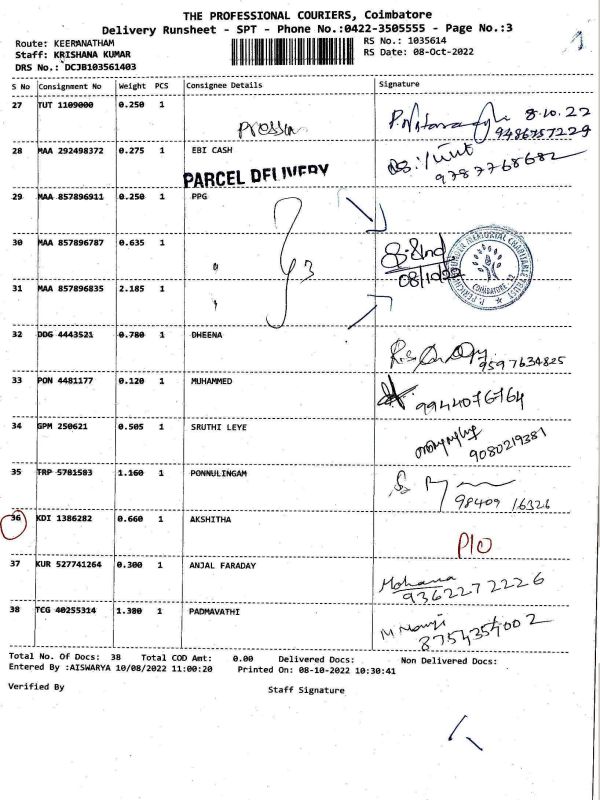 THE PROFESSIONAL COURIERS, Coimbatore
Delivery Runsheet - SPT - Phone No.:0422-3505555 - Page No.:3
Route: KEERANATHAM
Staff: KRISHANA KUMAR
DRS No.: DCJB103561403
RS No.: 1035614
RS Date: 08-Oct-2022
S No Consignment No Weight PCS Consignee Details Signature
27 TUT 1109000 0.250 1
8.10.22
9486757229
28 MAA 292498372 0.275 1 EBI CASH
9787768682
PARCEL DELIVERY
29 MAA 857896911 0.250 1 PPG
30 MAA 857896787 0.635 1 "
08/10/22
31 MAA 857896835 2.185 1 "
COIMBATORE
32 DDG 4443521 0.780 1 DHEENA
9597634825
33 PON 4481177 0.120 1 MUHAMMED
9944076764
34 GPM 250621 0.505 1 SRUTHI LEYE
9080219381
35 TRP 5781583 1.160 1 PONNULINGAM
98409 16326
36 KDI 1386282 0.660 1 AKSHITHA
P10
37 KUR 527741264 0.300 1 ANJAL FARADAY
Mohana
9362272226
38 TCG 40255314 1.380 1 PADMAVATHI
8754354002
Total No. Of Docs: 38 Total COD Amt: 0.00 Delivered Docs: Non Delivered Docs:
Entered By :AISWARYA 10/08/2022 11:00:20 Printed On: 08-10-2022 10:30:41
Verified By Staff Signature